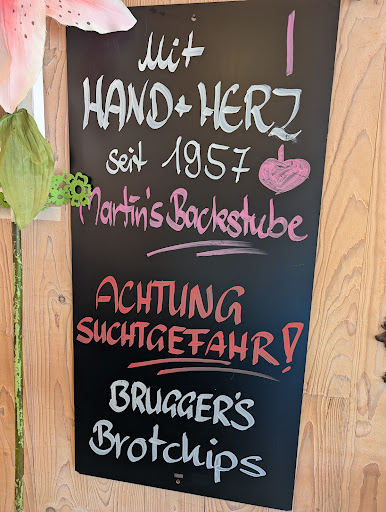 Mit
HAND + HERZ
seit 1957
Martin's Backstube
ACHTUNG
SUCHTGEFAHR!
BRUGGER'S
Brotchips